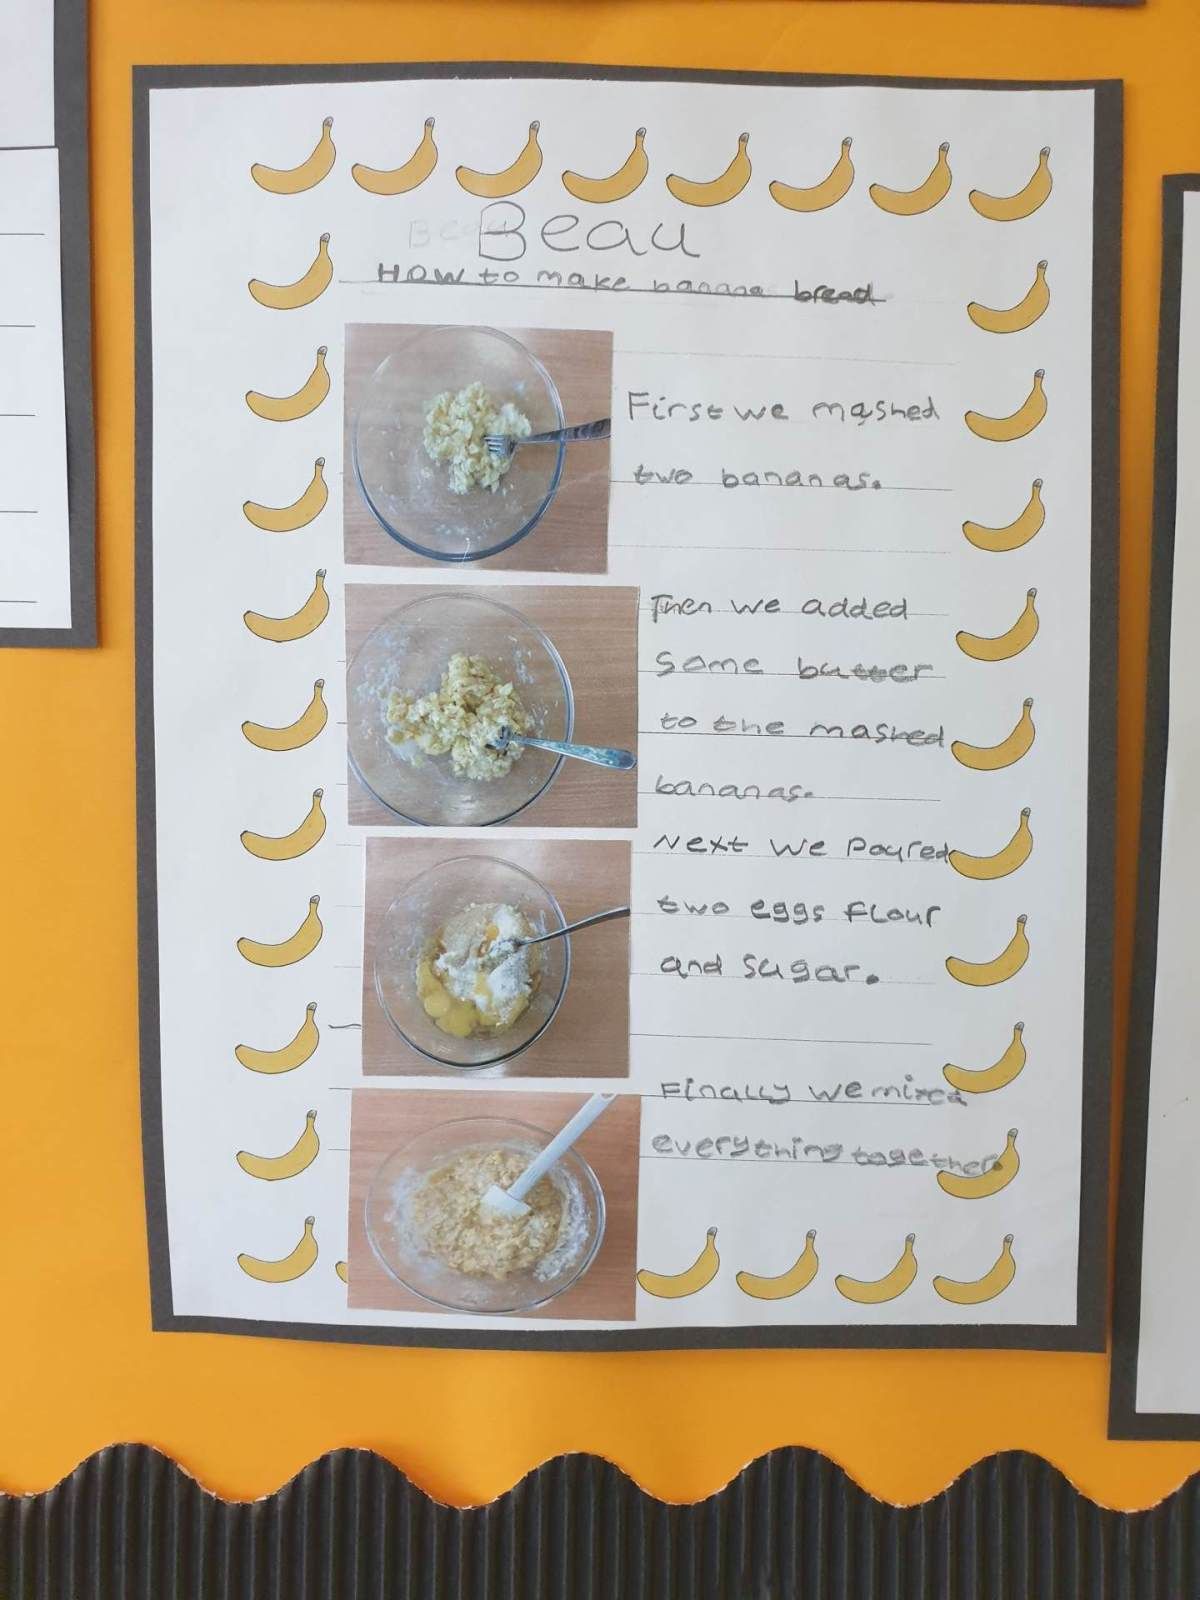 Beau
How to make banana bread
First we mashed
two bananas.
Then we added
some butter
to the mashed
bananas.
Next we Poured
two eggs flour
and sugar.
Finally we mixed
everything together.